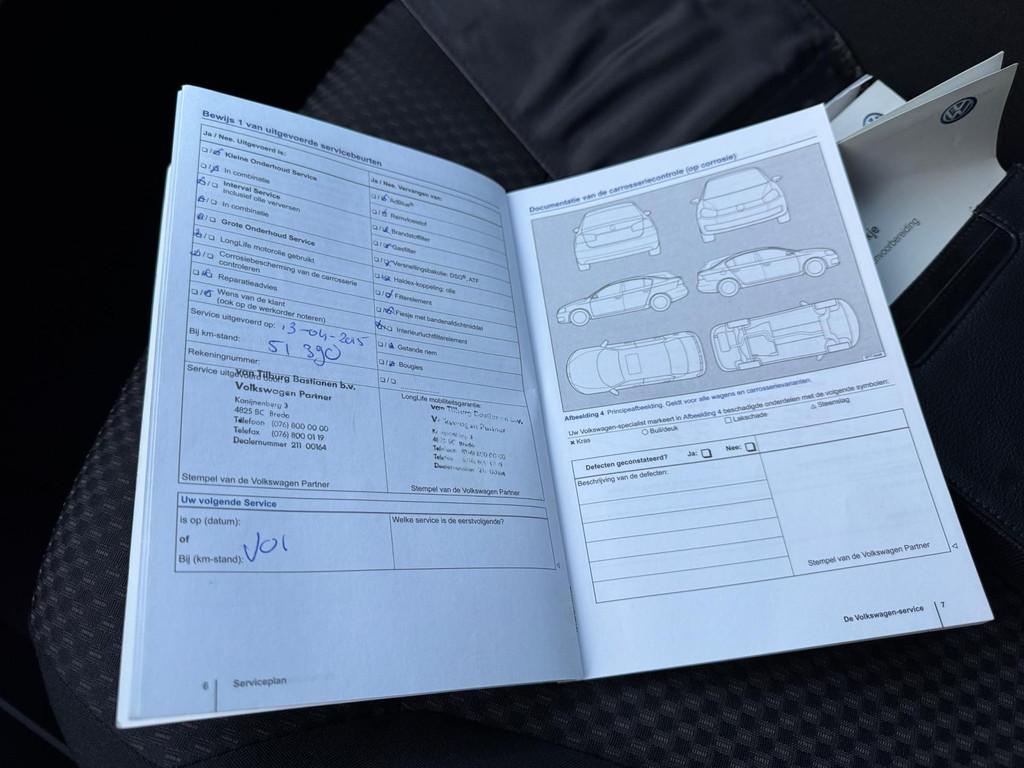 Bewijs 1 van uitgevoerde servicebeurten
Ja / Nee. Uitgevoerd is:
Kleine Onderhoud Service
In combinatie
Interval Service
Inclusief olie verversen
In combinatie
Grote Onderhoud Service
LongLife motorolie gebruikt
Corrosiebescherming van de carrosserie
controleren
Reparatieadvies
Wens van de klant
(ook op de werkorder noteren)
Service uitgevoerd op: 13-04-2015
Bij km-stand: 51 390
Rekeningnummer:
Service uitgevoerd door:
van Tilburg Bastionen b.v.
Volkswagen Partner
Konijnenberg 3
4825 BC Breda
Telefoon (076) 800 00 00
Telefax (076) 800 01 19
Dealernummer 211 00164
Stempel van de Volkswagen Partner
Ja / Nee. Vervangen van:
AdBlue®
Remvloeistof
Brandstoffilter
Gasfilter
Versnellingsbakolie: DSG®, ATF
Haldex-koppeling: olie
Filterelement
Flesje met bandenafdichtmiddel
Interieurluchtfilterelement
Getande riem
Bougies
LongLife mobiliteitsgarantie:
van Tilburg Bastionen b.v.
Volkswagen Partner
Konijnenberg 3
4825 BC Breda
Telefoon (076) 800 00 00
Dealernummer 211 00164
Stempel van de Volkswagen Partner
Uw volgende Service
is op (datum):
of
Bij (km-stand):
Welke service is de eerstvolgende?
6 Serviceplan
Documentatie van de carrosseriecontrole (op corrosie)
Afbeelding 4 Principeafbeelding. Geldt voor alle wagens en carrosserievarianten.
Uw Volkswagen-specialist markeert in Afbeelding 4 beschadigde onderdelen met de volgende symbolen:
× Kras ○ Buil/deuk □ Lakschade △ Steenslag
Defecten geconstateerd? Ja: Nee:
Beschrijving van de defecten:
Stempel van de Volkswagen Partner
De Volkswagen-service 7